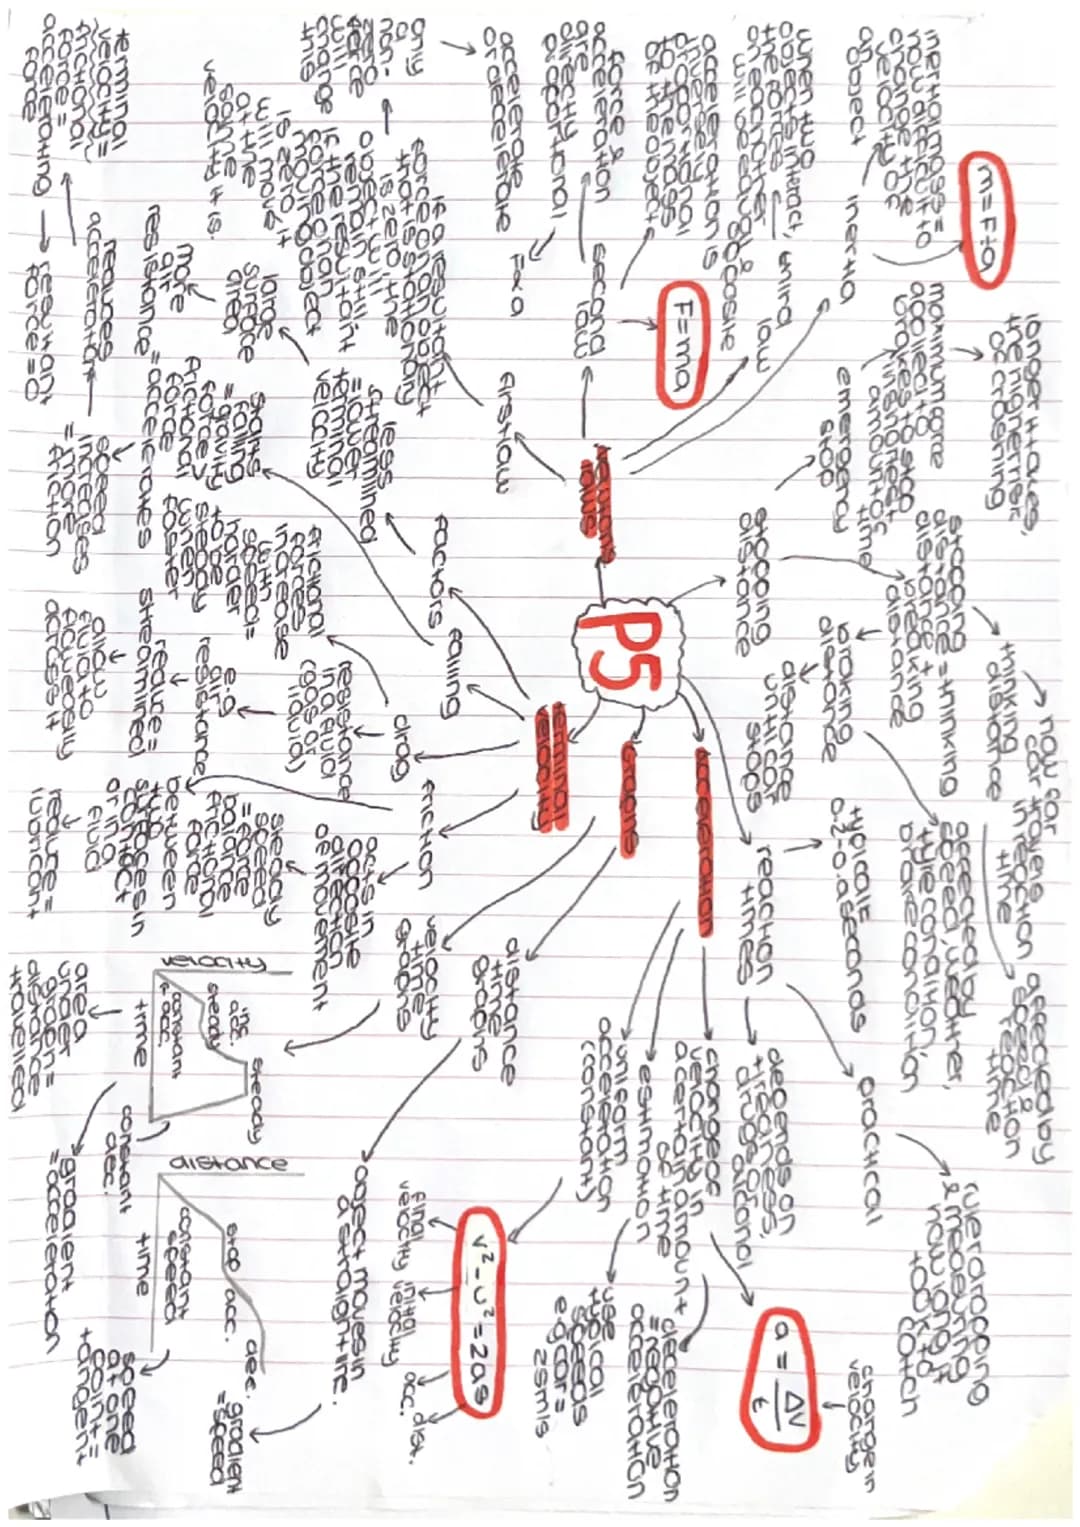 P5
newton's
laws
first law
if a resultant
force on an object
that's stationary
is zero, the
object will
remain still
if the resultant
force on an
moving object
is zero, it
will move
at the
same
velocity it is.
any
non-
zero
force
will
change
this
accelerate
or decelerate
second
law
force &
acceleration
are
directly
proportional
F∝a
acceleration is
inversely
proportional
to the mass
of the object
F=ma
third
law
when two
objects interact,
the forces
on each other
will be equal &
opposite
inertia
inertial mass =
how difficult to
change the
velocity of
an object
m=F÷a
stopping
distance
emergency
stop
maximum force
applied to
brakes to stop
in shortest
amount of
time
longer it takes,
the higher risk
of crashing
stopping
distance = thinking
distance +
braking
distance
thinking
distance
how far
car travels
in reaction
time
affected by
speed &
reaction
time
braking
distance
distance
until car
stops
affected by
speed, weather,
tyre condition,
brake condition
reaction
times
typical =
0.2-0.9 seconds
depends on
tiredness,
drugs or
alcohol
practical
ruler dropping
& measuring
how long it
took to
catch
acceleration
change of
velocity in
a certain amount
of time
a = Δv/t
change in
velocity
deceleration
= negative
acceleration
estimation
use
typical
speeds
e.g car =
25m/s
uniform
acceleration
(constant)
v² - u² = 2as
final
velocity
initial
velocity
acc.
dist.
graphs
distance
time
graphs
object moves in
a straight line.
gradient
= speed
distance
time
constant
speed
stop
acc.
dec.
speed
at one
point =
tangent
velocity
time
graphs
velocity
time
constant
acc.
steady
inc.
acc.
steady
constant
dec.
area
under
graph =
distance
travelled
gradient
= acceleration
terminal
velocity
friction
acts in
opposite
direction
of movement
steady
speed
= force
balance
frictional
force
between
two
surfaces in
contact
or in a
fluid
reduce =
lubricant
drag
resistance
in a fluid
(gas or
liquid)
frictional
forces
increase
with
speed =
harder
to be
steady
when
faster
e.g
air
resistance
reduce =
streamlined
allow
fluid to
flow easily
across it
falling
starts
falling
= gravity
force >
frictional
force
= accelerates
speed
increases
= more
friction
reduces
acceleration
terminal
velocity =
frictional
force =
accelerating
force
resultant
force = 0
factors
less
streamlined
= lower
terminal
velocity
large
surface
area
more
air
resistance